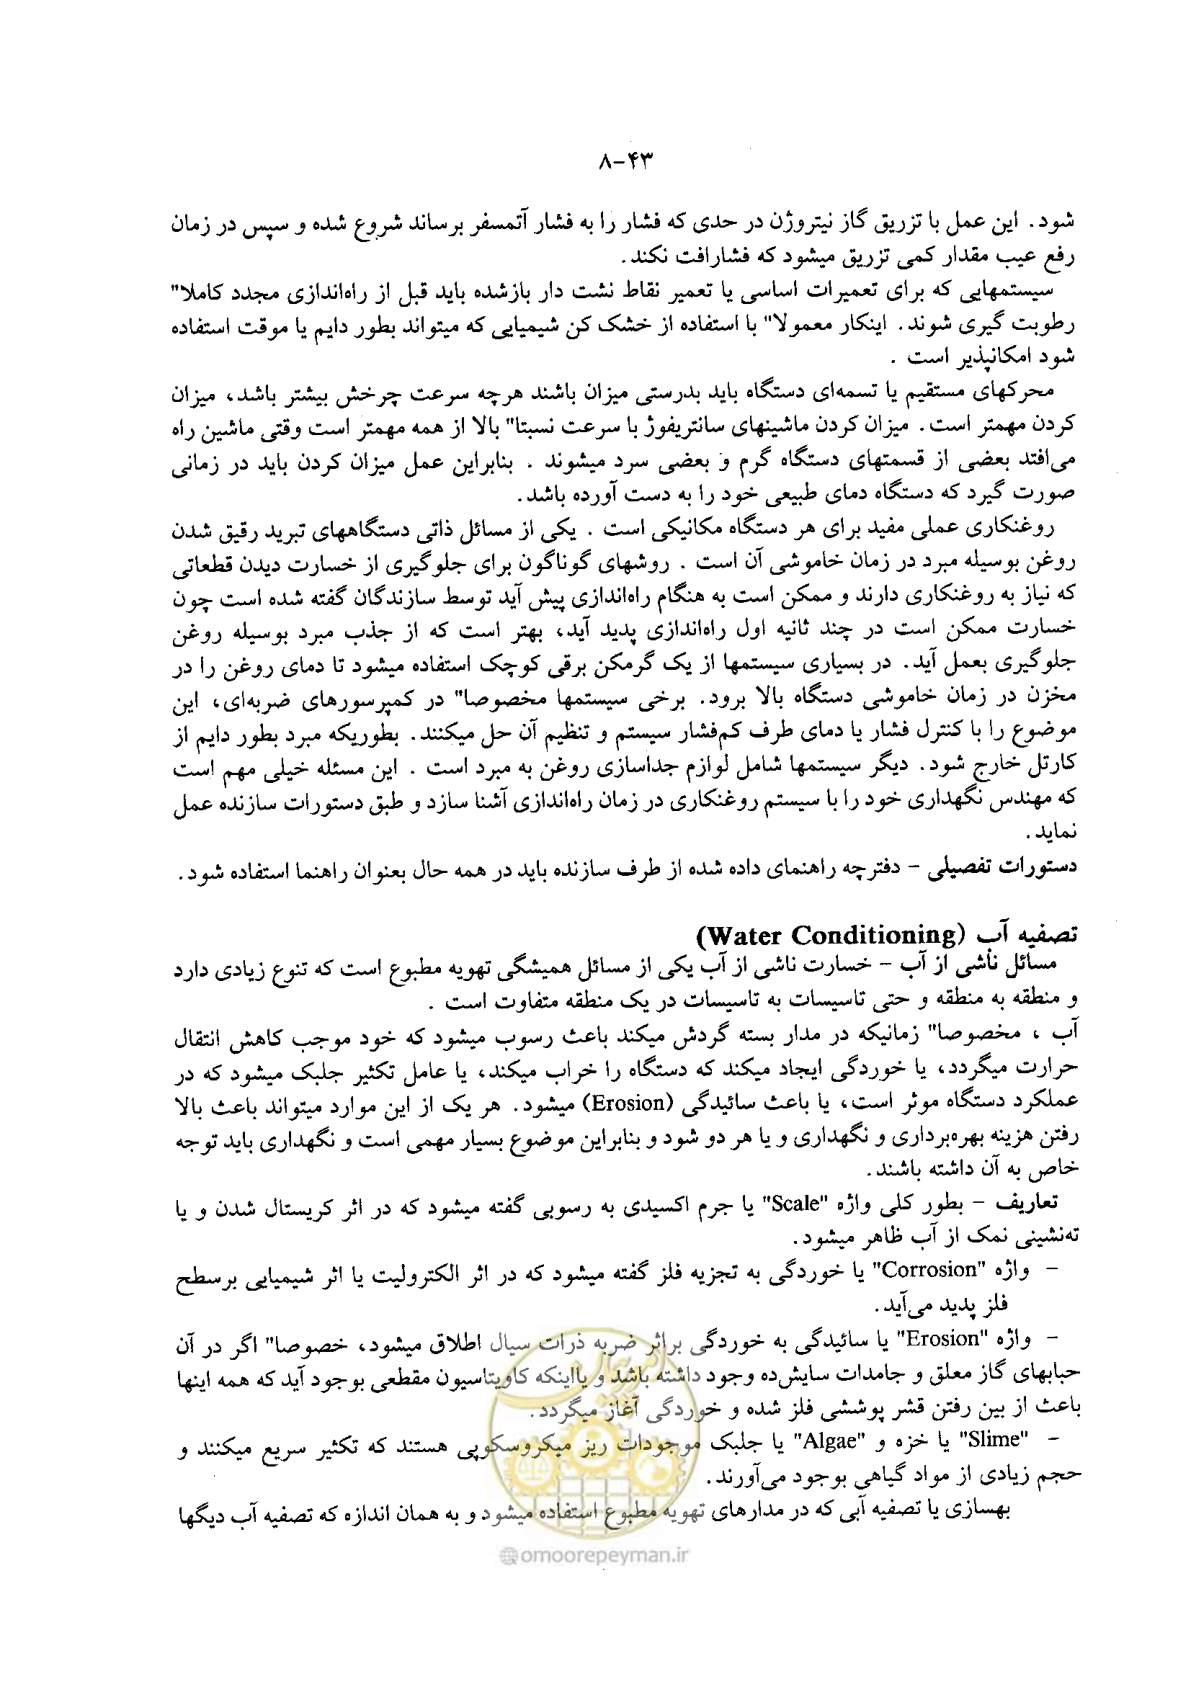 ۸-۴۳
شود. این عمل با تزریق گاز نیتروژن در حدی که فشار را به فشار آتمسفر برساند شروع شده و سپس در زمان
رفع عیب مقدار کمی تزریق میشود که فشارافت نکند.
سیستمهایی که برای تعمیرات اساسی یا تعمیر نقاط نشت دار بازشده باید قبل از راه‌اندازی مجدد کاملا"
رطوبت گیری شوند. اینکار معمولا" با استفاده از خشک کن شیمیایی که میتواند بطور دایم یا موقت استفاده
شود امکانپذیر است .
محرکهای مستقیم یا تسمه‌ای دستگاه باید بدرستی میزان باشند هرچه سرعت چرخش بیشتر باشد، میزان
کردن مهمتر است. میزان کردن ماشینهای سانتریفوژ با سرعت نسبتا" بالا از همه مهمتر است وقتی ماشین راه
می‌افتد بعضی از قسمتهای دستگاه گرم و بعضی سرد میشوند . بنابراین عمل میزان کردن باید در زمانی
صورت گیرد که دستگاه دمای طبیعی خود را به دست آورده باشد.
روغنکاری عملی مفید برای هر دستگاه مکانیکی است . یکی از مسائل ذاتی دستگاههای تبرید رقیق شدن
روغن بوسیله مبرد در زمان خاموشی آن است . روشهای گوناگون برای جلوگیری از خسارت دیدن قطعاتی
که نیاز به روغنکاری دارند و ممکن است به هنگام راه‌اندازی پیش آید توسط سازندگان گفته شده است چون
خسارت ممکن است در چند ثانیه اول راه‌اندازی پدید آید، بهتر است که از جذب مبرد بوسیله روغن
جلوگیری بعمل آید. در بسیاری سیستمها از یک گرمکن برقی کوچک استفاده میشود تا دمای روغن را در
مخزن در زمان خاموشی دستگاه بالا برود. برخی سیستمها مخصوصا" در کمپرسورهای ضربه‌ای، این
موضوع را با کنترل فشار یا دمای طرف کم‌فشار سیستم و تنظیم آن حل میکنند. بطوریکه مبرد بطور دایم از
کارتل خارج شود. دیگر سیستمها شامل لوازم جداسازی روغن به مبرد است . این مسئله خیلی مهم است
که مهندس نگهداری خود را با سیستم روغنکاری در زمان راه‌اندازی آشنا سازد و طبق دستورات سازنده عمل
نماید.
دستورات تفصیلی - دفترچه راهنمای داده شده از طرف سازنده باید در همه حال بعنوان راهنما استفاده شود.
تصفیه آب (Water Conditioning)
مسائل ناشی از آب - خسارت ناشی از آب یکی از مسائل همیشگی تهویه مطبوع است که تنوع زیادی دارد
و منطقه به منطقه و حتی تاسیسات به تاسیسات در یک منطقه متفاوت است .
آب ، مخصوصا" زمانیکه در مدار بسته گردش میکند باعث رسوب میشود که خود موجب کاهش انتقال
حرارت میگردد، یا خوردگی ایجاد میکند که دستگاه را خراب میکند، یا عامل تکثیر جلبک میشود که در
عملکرد دستگاه موثر است، یا باعث سائیدگی (Erosion) میشود. هر یک از این موارد میتواند باعث بالا
رفتن هزینه بهره‌برداری و نگهداری و یا هر دو شود و بنابراین موضوع بسیار مهمی است و نگهداری باید توجه
خاص به آن داشته باشند.
تعاریف - بطور کلی واژه "Scale" یا جرم اکسیدی به رسوبی گفته میشود که در اثر کریستال شدن و یا
ته‌نشینی نمک از آب ظاهر میشود.
- واژه "Corrosion" یا خوردگی به تجزیه فلز گفته میشود که در اثر الکترولیت یا اثر شیمیایی برسطح
فلز پدید می‌آید.
- واژه "Erosion" یا سائیدگی به خوردگی براثر ضربه ذرات سیال اطلاق میشود، خصوصا" اگر در آن
حبابهای گاز معلق و جامدات سایش‌ده وجود داشته باشد و یااینکه کاویتاسیون مقطعی بوجود آید که همه اینها
باعث از بین رفتن قشر پوششی فلز شده و خوردگی آغاز میگردد.
- "Slime" یا خزه و "Algae" یا جلبک موجودات ریز میکروسکوپی هستند که تکثیر سریع میکنند و
حجم زیادی از مواد گیاهی بوجود می‌آورند.
بهسازی یا تصفیه آبی که در مدارهای تهویه مطبوع استفاده میشود و به همان اندازه که تصفیه آب دیگها
@omoorepeyman.ir